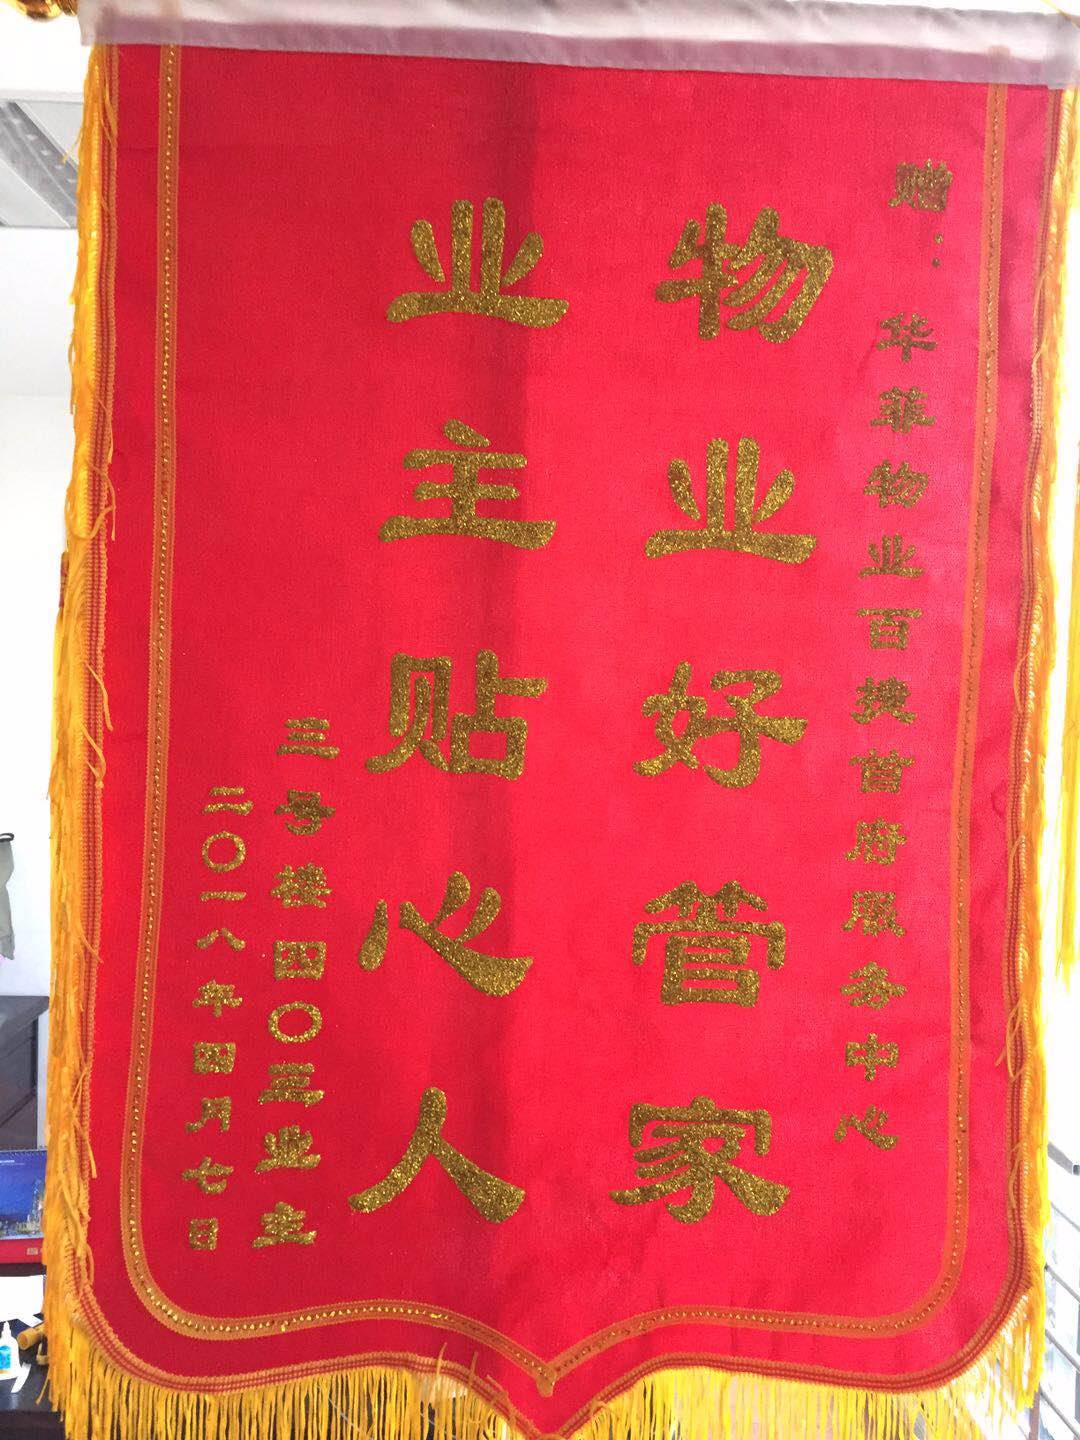 赠：华菲物业百捷首府服务中心
物业好管家
业主贴心人
三号楼四〇三业主
二〇一八年四月七日